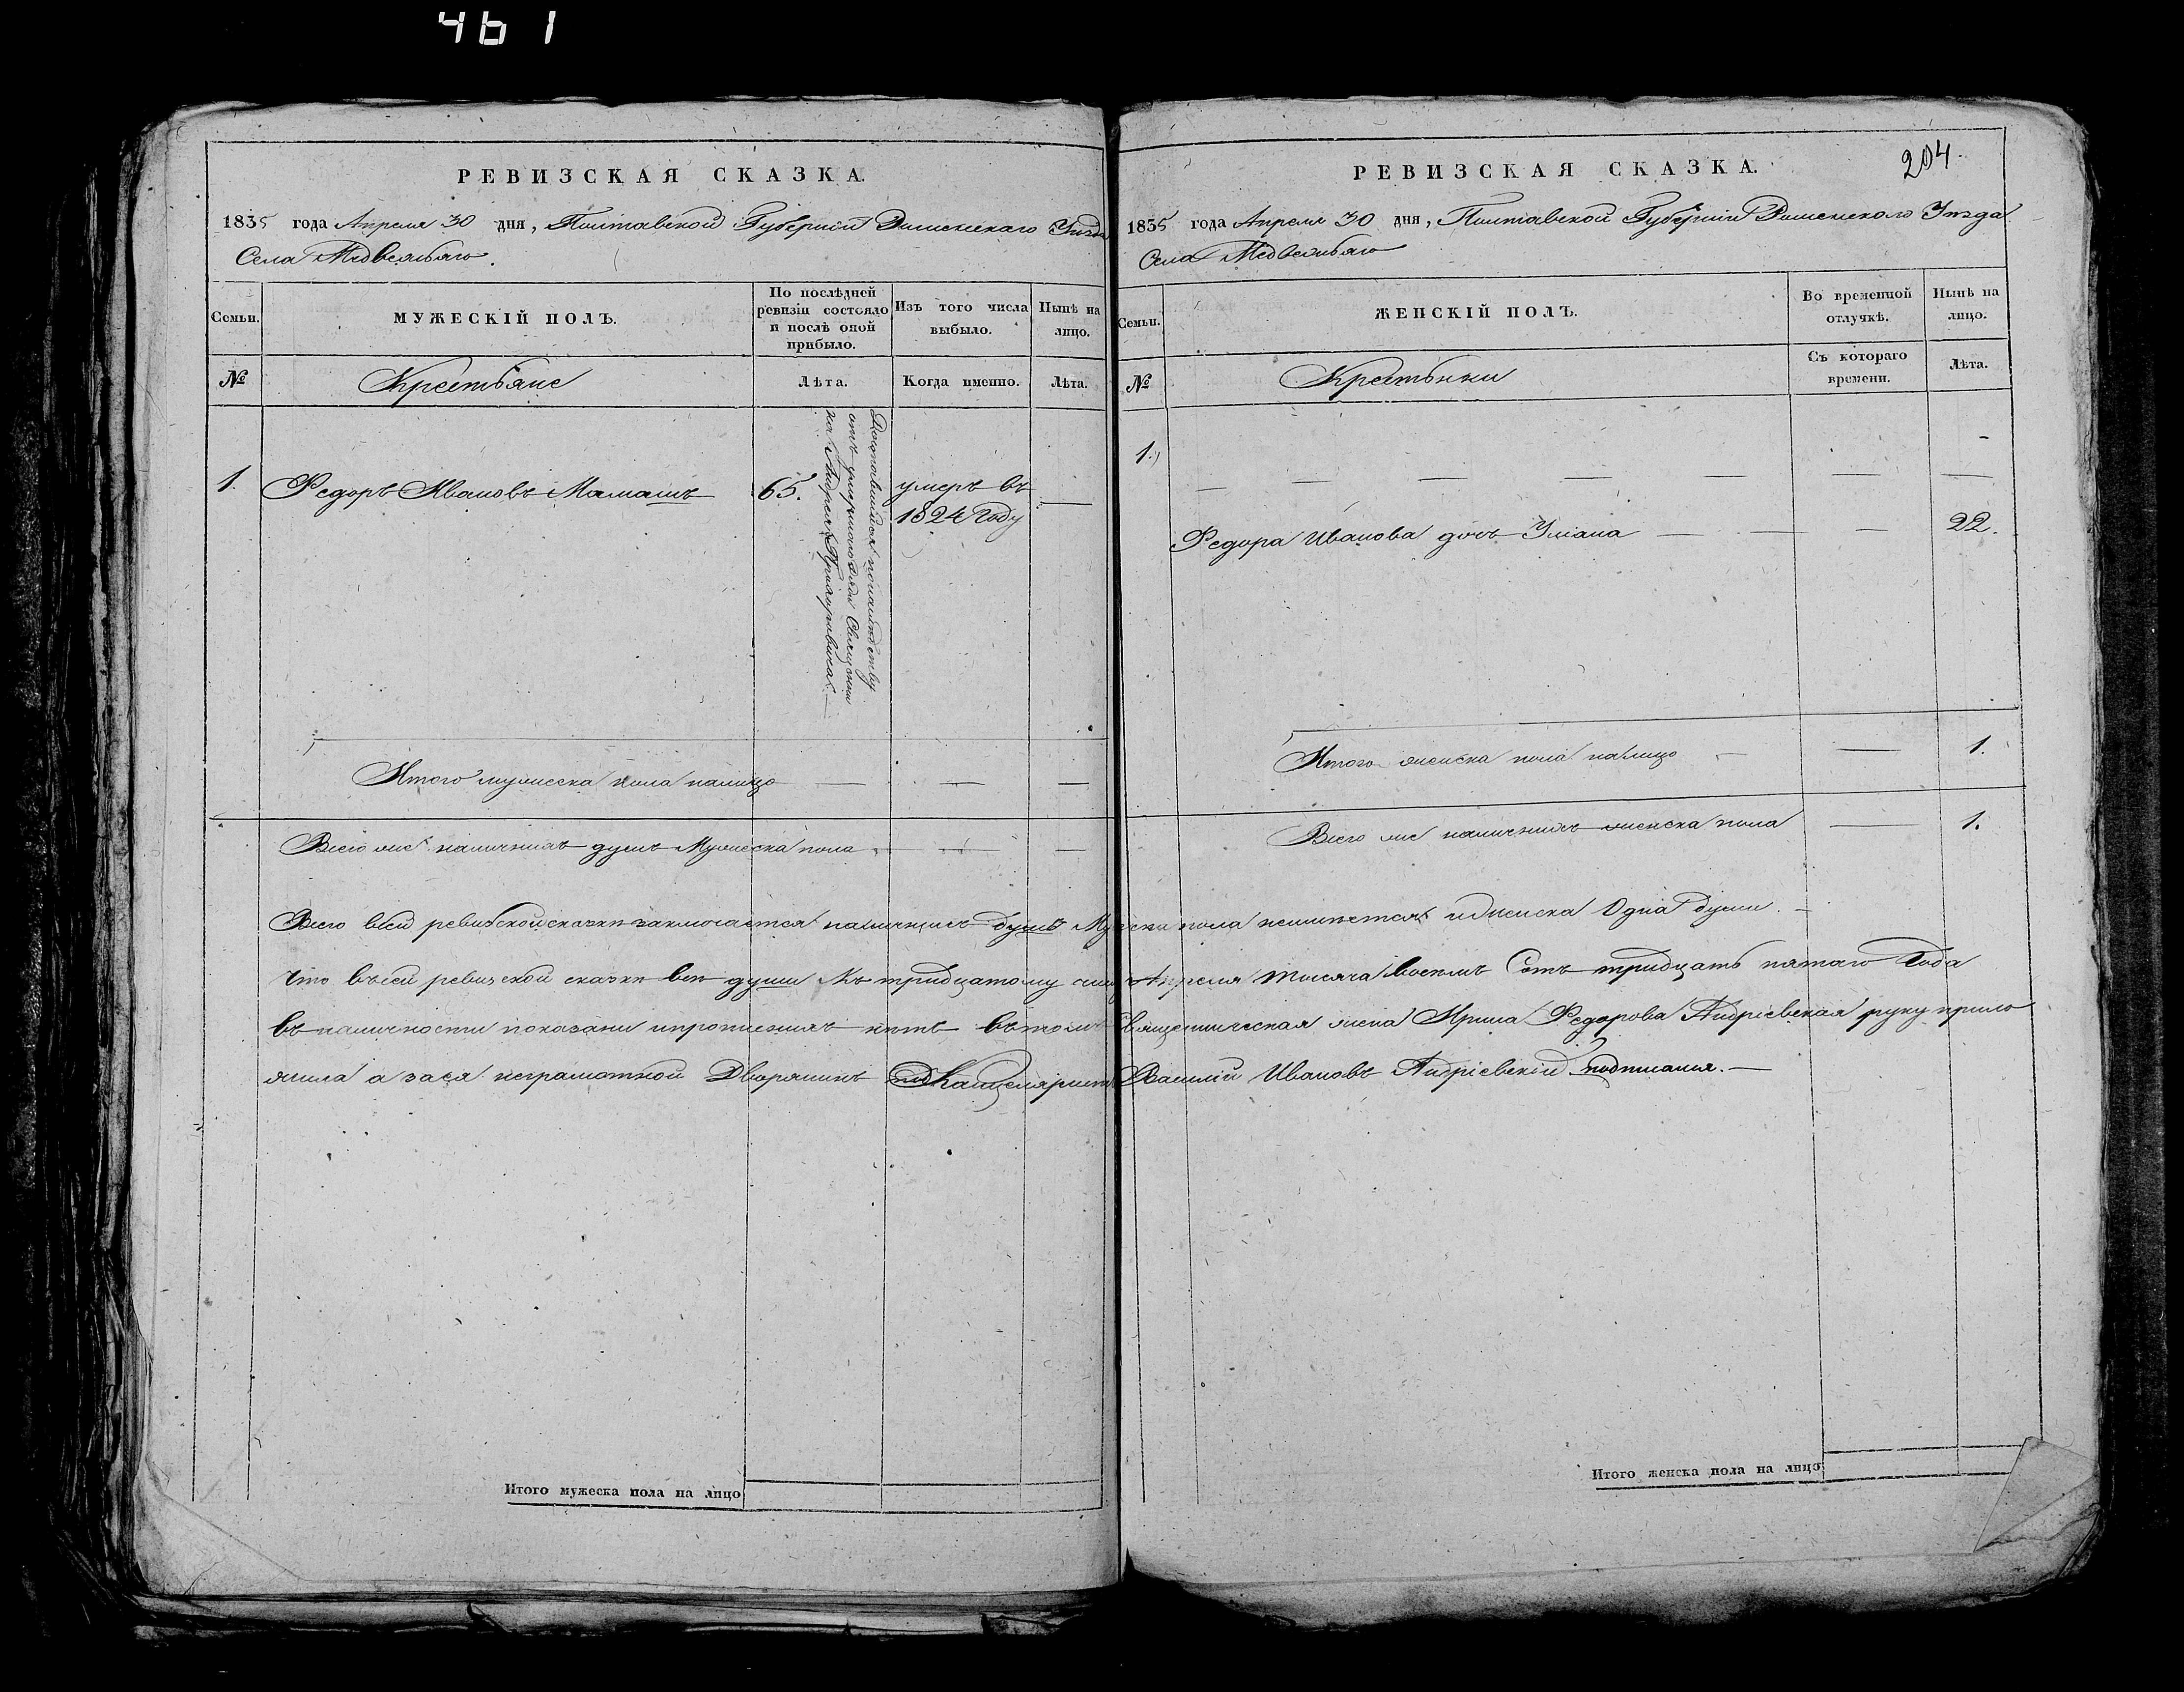 461
РЕВИЗСКАЯ СКАЗКА.
1835 года Апреля 30 дня, Полтавской Губерніи Роменскаго Уѣзда
Села Медвежьяго.
Семьи.
МУЖЕСКІЙ ПОЛЪ.
По послѣдней ревизіи состояло и послѣ оной прибыло.
Изъ того числа выбыло.
Нынѣ на лицо.
№
Крестьяне
Лѣта.
Когда именно.
Лѣта.
Доставшійся по наследству
отъ умершаго дяди Священни
ка Андрея
1. Федоръ Ивановъ Мамашъ 65. умеръ въ
1824 Году
Итого мужеска пола налицо
Всего же наличнихъ душъ Мужеска пола
204.
РЕВИЗСКАЯ СКАЗКА.
1835 года Апреля 30 дня, Полтавской Губерніи Роменского Уѣзда
Села Медвежьяго
Семьи.
ЖЕНСКІЙ ПОЛЪ.
Во временной отлучкѣ.
Нынѣ на лицо.
№
Крестьянки
Съ котораго времени.
Лѣта.
1.
Федора Иванова дочь Уліана 22.
Итого женска пола налицо 1.
Всего же наличнихъ женска пола 1.
Всего всей ревизской сказки заключается наличнихъ душъ Мужеска пола неимѣется, иженска Одна душа.
Что въ сей ревизской сказки всѣ души Къ тридцатому числу Апреля тисяча восемъ Сотъ тридцать пятаго Года
въ наличности показани ипрописнихъ нетъ въ томъ Священическая жена Ирина Федорова Андріевская руку прило
жила а за ея неграмотной Дворянинъ Канцеляристъ Василій Ивановъ Андріевскій подписался.
Итого мужеска пола на лицо
Итого женска пола на лицо